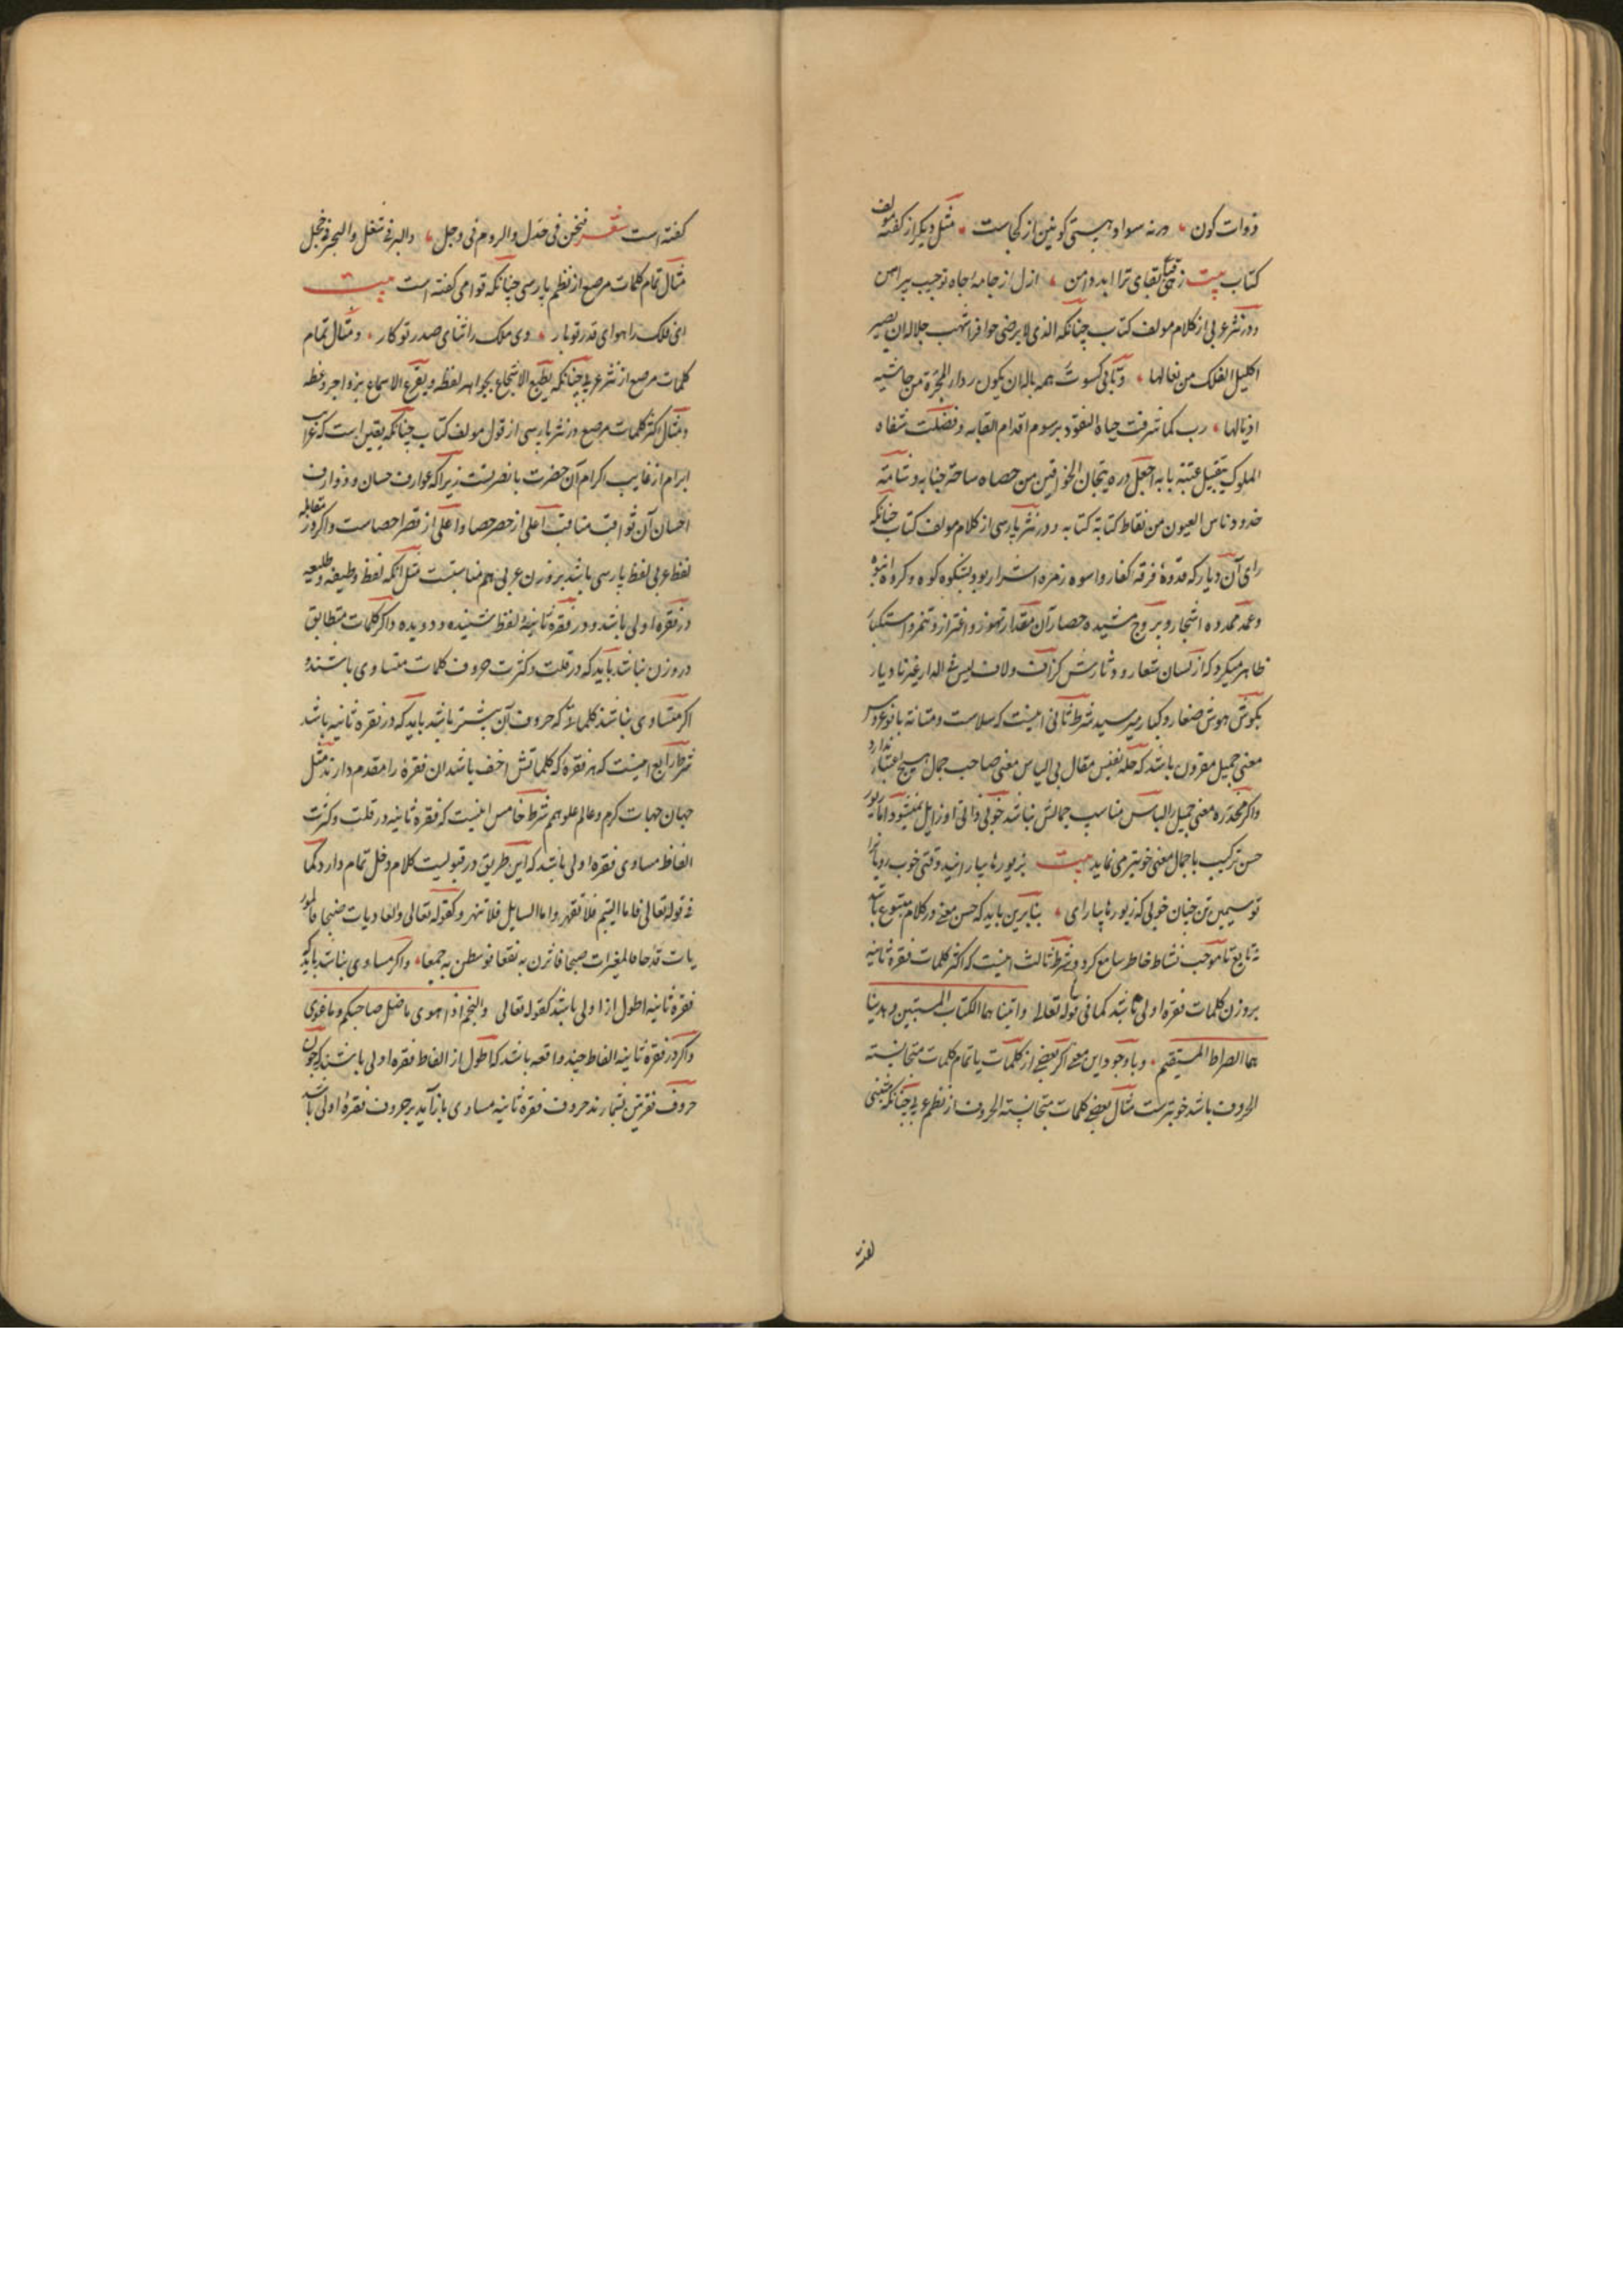 ذوات کون ورنه سواد هستی کونین از کجاست مثل دیگر از کفته مولف
کتاب بیت زهی قبای بقای ترا ابد دامن ازل از جامه جاه تو جیب پیراهن
و در نثر عربی از کلام مولف کتاب چنانکه الذی لا یرضی حوافر اشهب جلاله ان یصیر
اکلیل الفلک من نعالها و تابی کسوت همه بالان یکون ردار المجرة من حاشیه
اذیالها رب کما شرفت جباه النقود برسوم اقدام القابه و فضلت شفاه
الملوک بتقبیل عتبة بابه اجعل درة تیجان الخواقین من حصاه ساحة جنابه و شامة
خدود ناس العیون من نقاط کتابة کتابه و در نثر پارسی از کلام مولف کتاب چنانکه
رای آن دیار که قدوهٔ فرقه کفار و اسوه زمره اشرار بود بشکوه کوه و کروه انبوه
و عمد ممدوه اشجار و بروج مشیده حصار آن مقدار تهور و اغترار و تنمر و استکبار
ظاهر میکرد که از لسان شعار و دثارش کزاف و لاف لیس فی الدار غیرنا دیار
بکوش هوش صغار و کبار میرسید شرط ثانی اینست که سلاست و متانة بانو عروس
معنی جمیل مقرون باشد که حله نفیس مقال بی لباس معنی صاحب جمال هیچ اعتبار ندارد
و اکر مخدره معنی جمیل را لباس مناسب جمالش نباشد خوبی ذاتی او زایل نمیشود اما بزیور
حسن ترکیب با جمال معنی خوبتر می نماید بیت بزیورها بیارایند وقتی خوب رویانرا
تو سیمین تن چنان خوبی که زیورها بیارایی بنابرین باید که حسن معنی در کلام متبوع باشد
نه تابع تا موجب نشاط خاطر سامع کردد و شرط ثالث اینست که اکثر کلمات فقره ثانیه
بر وزن کلمات فقره اولی باشد کما فی قوله تعالی و اتینا هما الکتاب المستبین و هدینا
هما الصراط المستقیم و با وجود این معنی اکر بعضی از کلمات یا تمام کلمات متجانسته
الحروف باشد خوبترست مثال بعضی کلمات متجانسته الحروف از نظم عربی چنانکه متنبی
کفته است شعر فنحن فی جذل والروم فی وجل والبر فی شغل والبحر فی خجل
مثال تمام کلمات مرصع از نظم پارسی چنانکه قوامی کفته است بیت
ای فلک را هوای قدر تو بار وی ملک را ثنای صدر تو کار و مثال تمام
کلمات مرصع از نثر عربی چنانکه یطبع الاسجاع بجواهر لفظه و یقرع الاسماع بزواجر وعظه
و مثال اکثر کلمات مرصع در نثر پارسی از قول مولف کتاب چنانکه یقین است که غراب
ابرام از غایب اکرام آن حضرت با نصرتست زیرا که عوارف حسان و ذوارف
احسان آن ثواقب مناقب اعلی از حصر حصا و اعلی از قصر احصاست و اکر در مقابله
لفظ عربی لفظ پارسی باشد بر وزن عربی هم مناسبست مثل آنکه لفظ وظیفه و طلیعه
در فقره اولی باشد و در فقره ثانیه لفظ شنیده و دویده و اکر کلمات متطابق
در وزن نباشد باید که در قلت و کثرت حروف کلمات متساوی باشند و
اکر متساوی نباشند کلماتی که حروف آن بیشتر باشد باید که در فقره ثانیه باشد
شرط رابع اینست که هر فقره که کلماتش اخف باشد ان فقره را مقدم دارند مثل
جهان جهات کرم و عالم علو همم شرط خامس اینست که فقره ثانیه در قلت و کثرت
الفاظ مساوی فقره اولی باشد که این طریق در قبولیت کلام دخل تمام دارد کما
فی قوله تعالی فاما الیتیم فلا تقهر و اما السایل فلا تنهر و کقوله تعالی والعادیات ضبحا فالمور
یات قدحا فالمغیرات صبحا فاثرن به نقعا فوسطن به جمعا و اکر مساوی نباشد باید که
فقره ثانیه اطول از اولی باشد کقوله تعالی والنجم اذا هوی ما ضل صاحبکم و ما غوی
و اکر در فقره ثانیه الفاظ چند واقعه باشد که اطول از الفاظ فقره اولی باشند که چون
حروف فقرتین بشمارند حروف فقره ثانیه مساوی باز آید بر حروف فقرهٔ اولی باشد